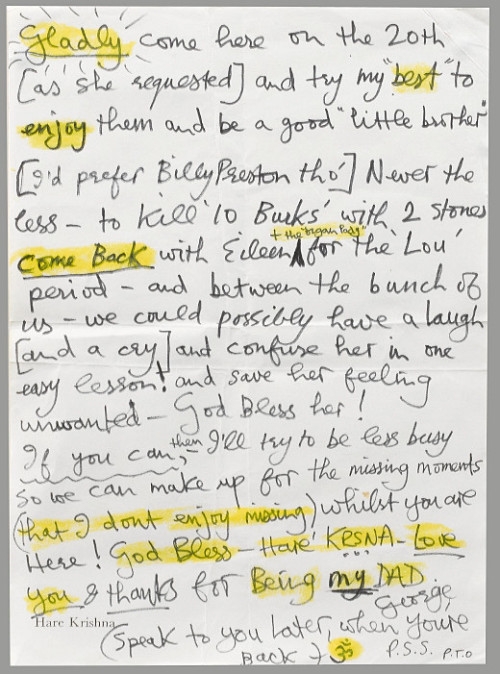 Gladly come here on the 20th
[as she requested] and try my "best" to
enjoy them and be a good "little brother"
[I'd prefer Billy Preston tho'] Never the
less – to kill '10 Burks' with 2 stones
+ the "organ lady"
Come Back with Eileen ∧ for the 'Lou'
period – and between the bunch of
us – we could possibly have a laugh
[and a cry] and confuse her in one
easy lesson! and save her feeling
unwanted – God Bless her!
If you can, then I'll try to be less busy
so we can make up for the missing moments
(that I dont enjoy missing) whilst you are
Here! God Bless – Hare KRSNA – Love
You & thanks for Being my DAD.
George
Hare Krishna
(Speak to you later, when you're
Back + ॐ P.S.S. P.T.O